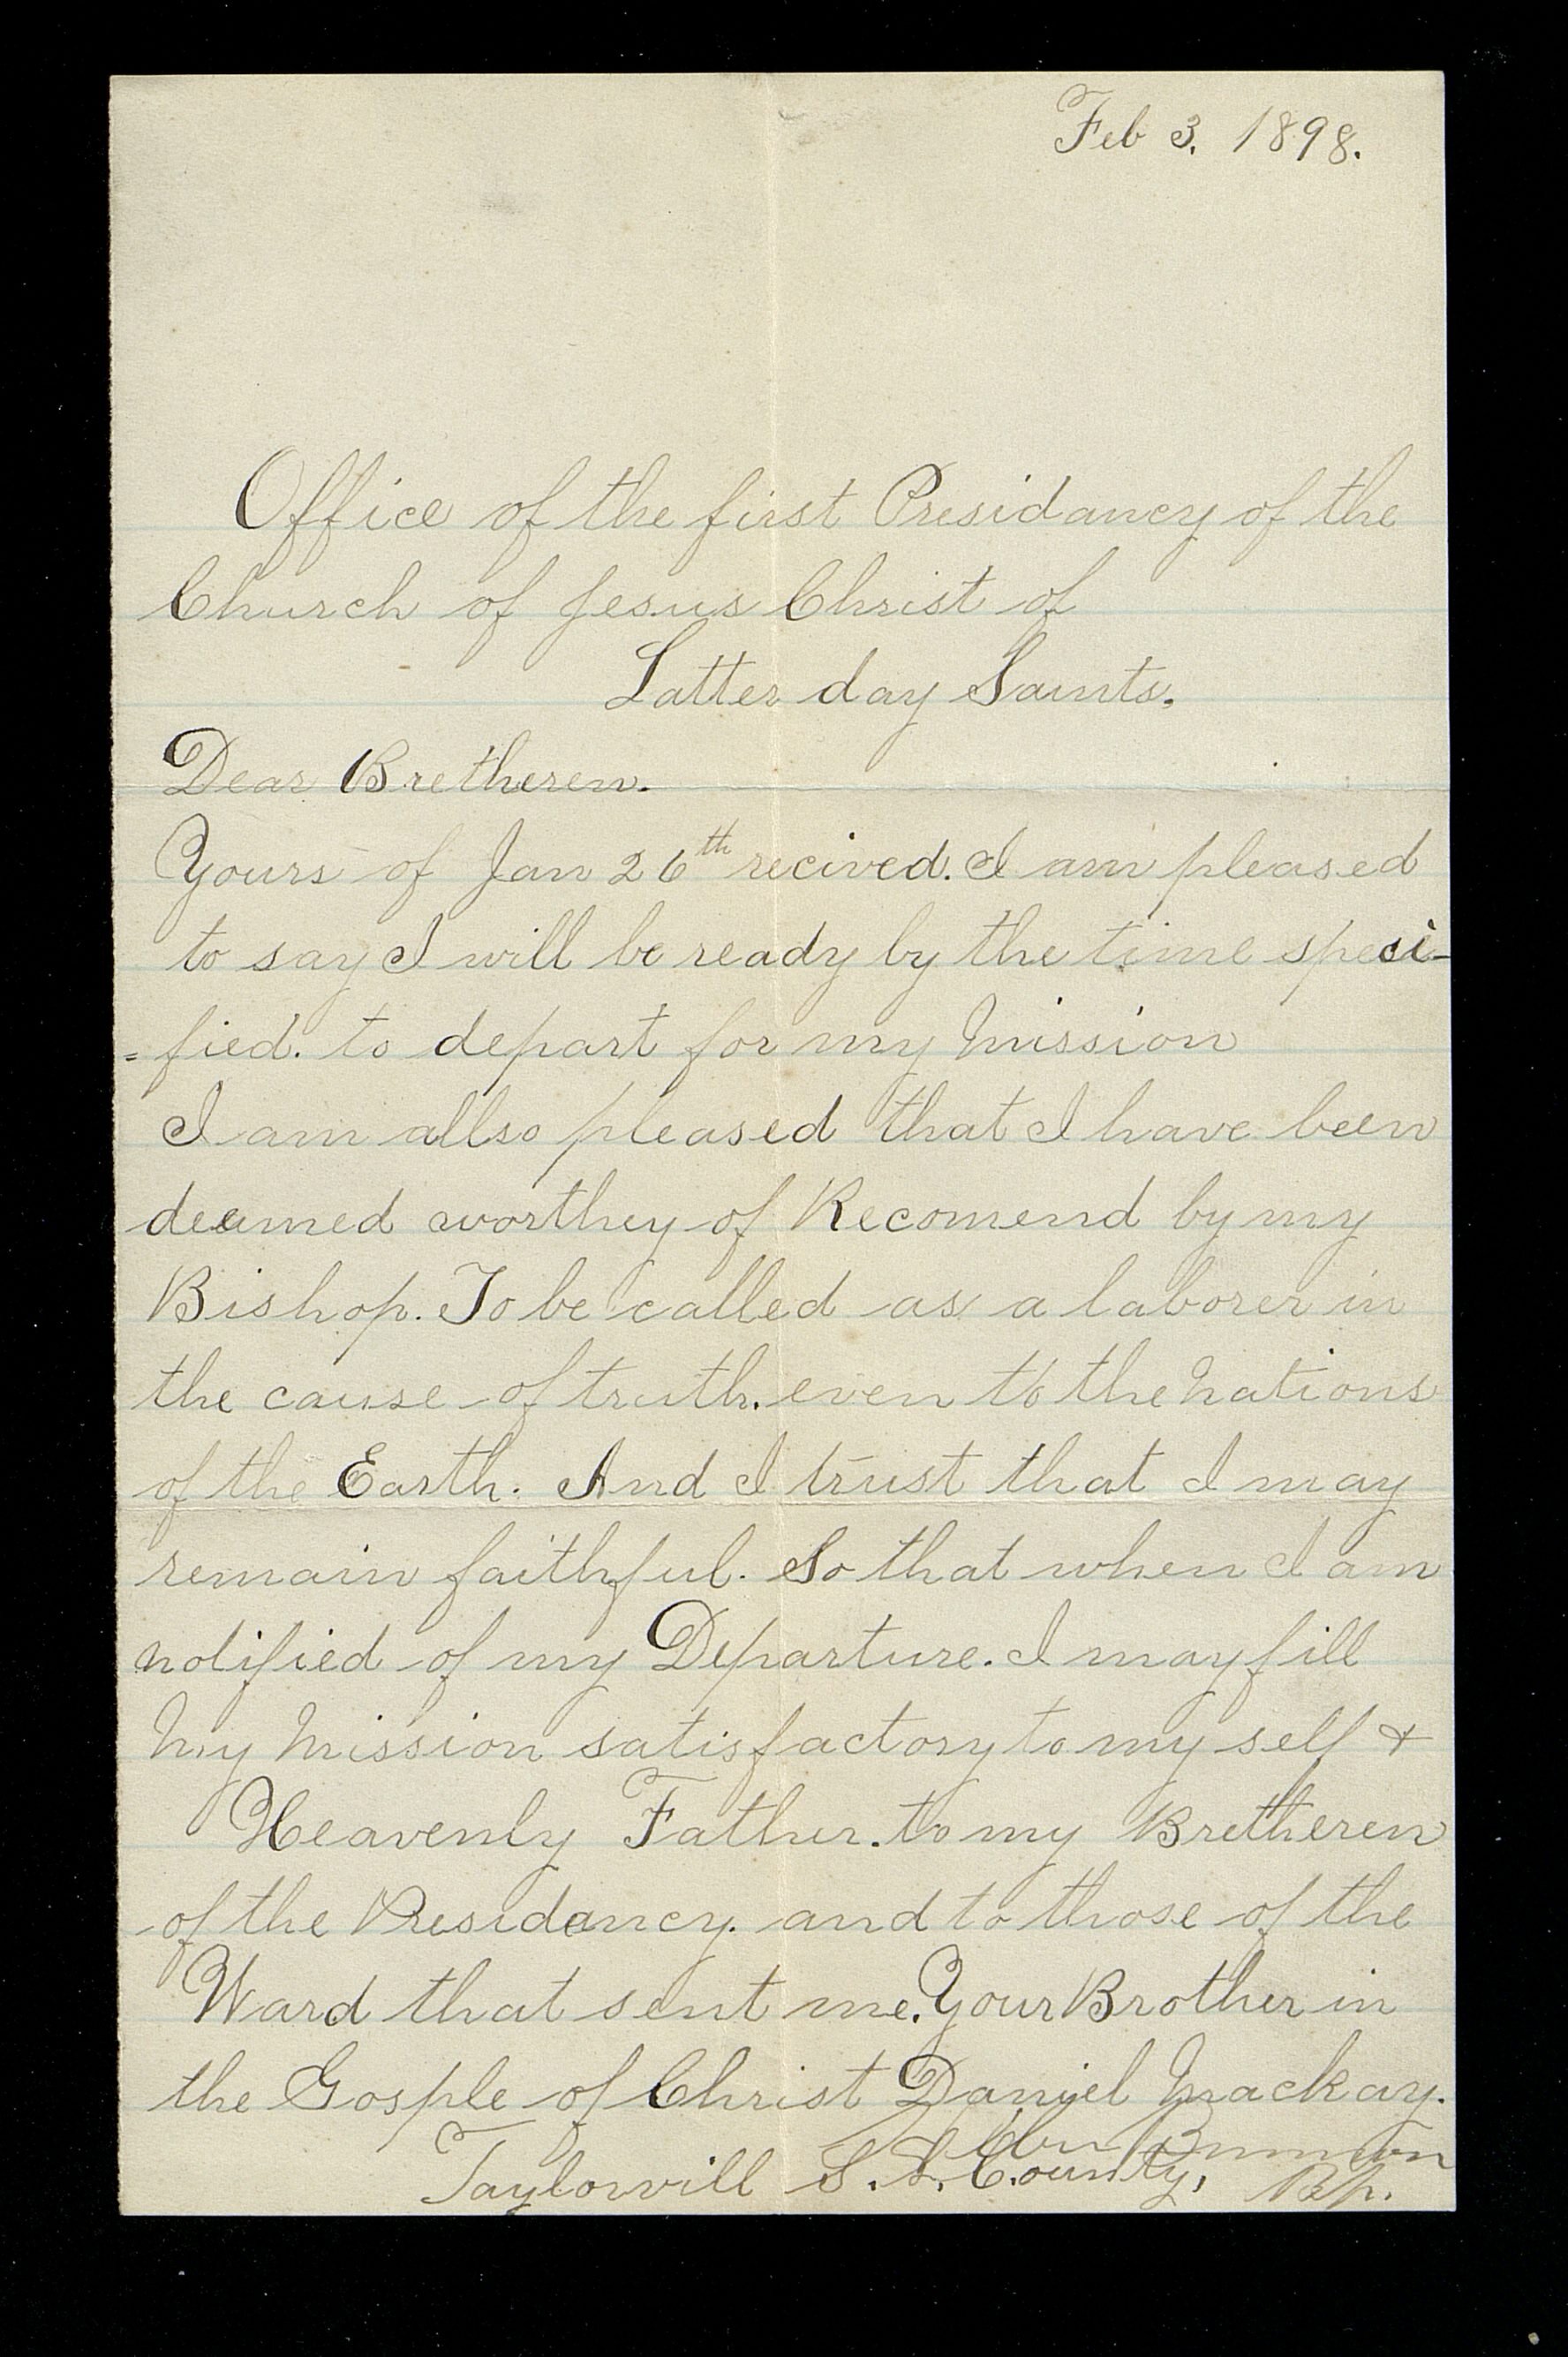 Feb 3, 1898.
Office of the first Presidancy of the
Church of Jesus Christ of
Latter day Saints.
Dear Bretheren.
Yours of Jan 26th recived. I am pleased
to say I will be ready by the time speci-
=fied. to depart for my Mission
I am allso pleased that I have been
deemed worthey of Recomend by my
Bishop. To be called as a laborer in
the cause of truth. even to the Nations
of the Earth. And I trust that I may
remain faithful. So that when I am
notified of my Departure. I may fill
My Mission satisfactory to my self &
Heavenly Father. to my Bretheren
of the Presidancy. and to those of the
Ward that sent me. Your Brother in
the Gosple of Christ Daniel Mackay.
Taylorvill S. L. County,
Bp.